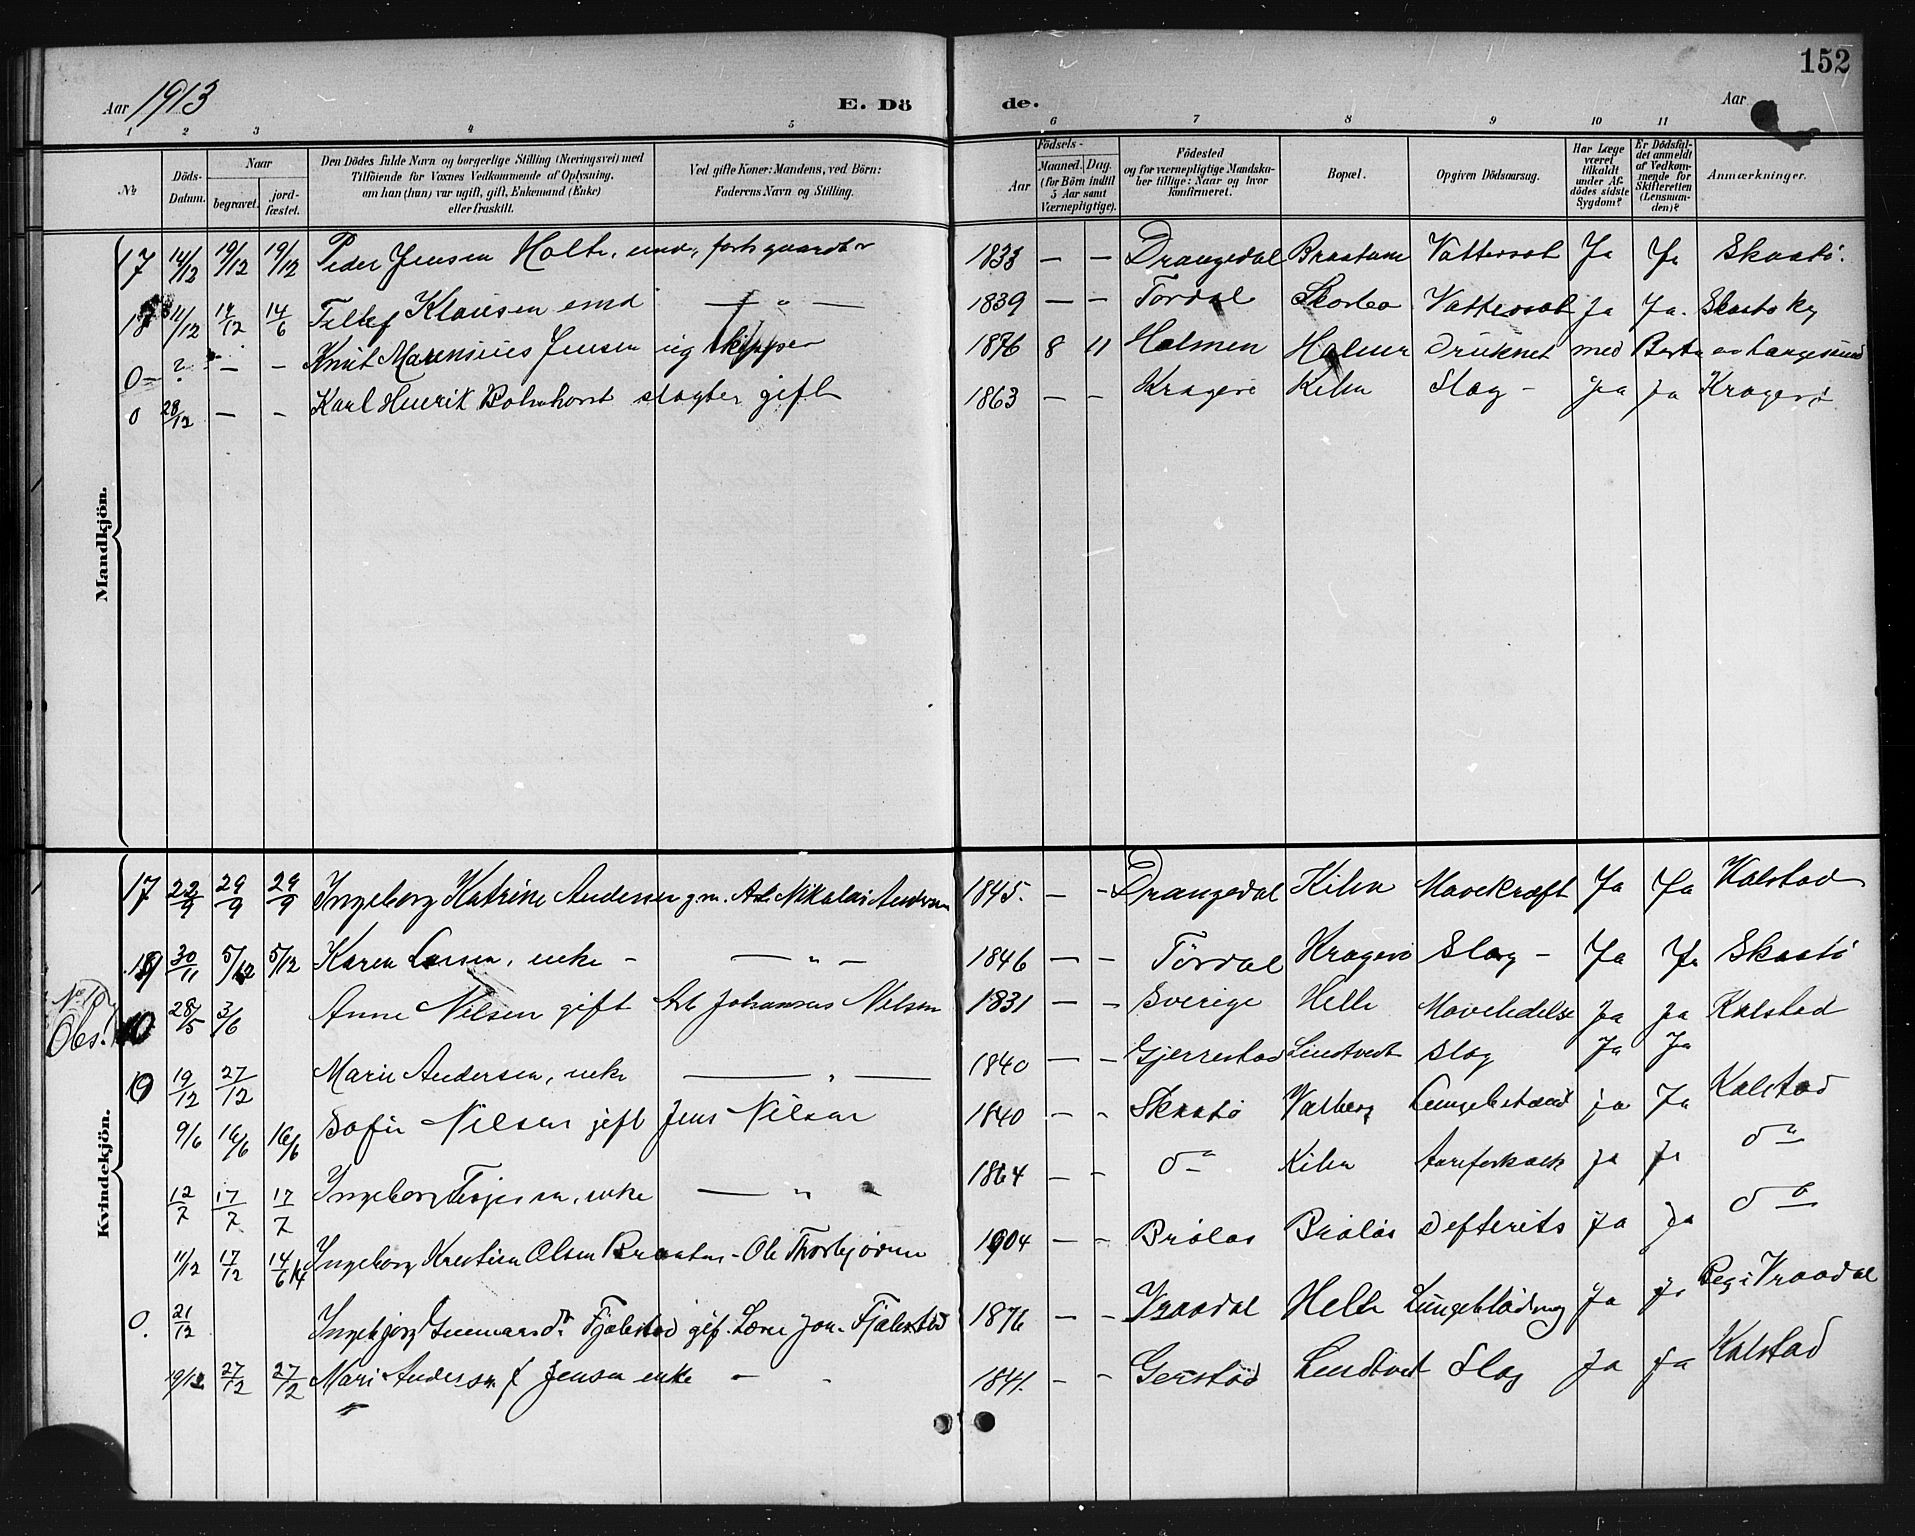 152
Aar 1913 E. Dö de. Aar
1 2 3 4 5 6 7 8 9 10 11
No
Döds-Datum.
Naar
begravet.
jord-fæstet.
Den Dödes fulde Navn og borgerlige Stilling (Næringsvei) med
Tilföiende for Voxnes Vedkommende af Oplysning,
om han (hun) var ugift, gift, Enkemand (Enke)
eller fraskilt.
Ved gifte Koner: Mandens, ved Börn:
Faderens Navn og Stilling.
Födsels-
Aar
Maaned. Dag.
(for Börn indtil
5 Aar samt
Værnepligtige).
Födested
og for værnepligtige Mandska-
ber tillige: Naar og hvor
konfirmeret.
Bopæl.
Opgiven Dödsaarsag.
Har Læge
været
tilkaldt
under Af-
dödes sidste
Sygdom?
Er Dödsfal-
det anmeldt
af Vedkom-
mende for
Skifteretten
(Lensman-
den)?
Anmærkninger.
Mandkjön.
17 14/12 19/12 19/12 Peder Jensen Holte, emd, 1833 — — Drangedal Vattersot Ja Ja Skaatö.
18 11/12 17/12 14/6 Klausen emd — " — 1839 — — Tördal Vattersot Ja Ja. Skaatö
0— ? — — Knut Marensius Jensen ug skipper 1876 8 11 Holmen Holmen Druknet med
0 28/12 — — Karl Henrik slagter gift 1863 — — Kragerö Kiln Slag — ja ja Kragerö
Kvindekjön.
17 22/9 29/9 29/9 Ingeborg Katrine Andersen g.m. Arb. Nikolai Andersen 1845. — — Drangedal Kiln Mavekræft Ja Ja Kalstad
30/11 5/12 5/12 Karen Larsen, enke — — " — 1846 — — Tördal Kragerö Slag — Ja Ja Skaatö
Obs. 28/5 3/6 Anne Nilsen gift Arb Johannes Nilsen 1831 — — Sverige Helle Ja Ja Kalstad
19 19/12 27/12 Marie Andersen, enke — " — 1840 — — Gjerrestad Lindtvedt Slag Ja Ja
9/6 16/6 16/6 Sofie Nilsen gift Jens Nilsen 1840 — — Skaatö Valberg ja Ja Kalstad
12/7 17/7 17/7 Ingeborg enke — " 1864 — — do Kiln Aareforkalk ja ja do
11/12 17/12 14/6 14 Ingeborg Kristine Olsen — Ole Thorbjörnsen 1904 — — Bråløs Bråløs Defterits ja ja do
0. 21/12 Ingebjörg Gunnarsdr. Fjalestad gif. Lærer Jon Fjalestad 1876 — — Vraadal Helle Ja ja Beg i Vraadal
19/12 27/12 27/12 Mari Andersen f Jensen enke — 1841. — — Gerestad Lindtvet Slag Ja ja Kalstad